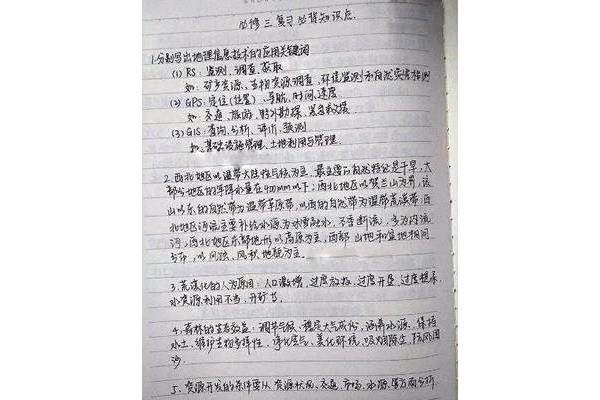 必修三复习必背知识点
1.分别写出地理信息技术的应用关键词
(1) RS:监测、调查、获取
如:矿产资源、生物资源调查、环境监测和自然灾害检测
(2) GPS:定位(位置)、导航、时间、速度
如:交通、旅游、野外勘探、紧急救援
(3) GIS:查询、分析、评价、预测
如:基础设施管理、土地利用与管理.
2.西北地区以温带大陆性气候为主,最显著的自然特征是干旱,大
部分地区的年降水量在400mm以下;西北地区以贺兰山为界,该
山以东的自然带为温带草原带,以西的自然带为温带荒漠带;西
北地区河流主要补给水源为冰雪融水,不断流,多为内流
河;西北地区东部地形以高原为主,西部山地和盆地相间
分布,以风沙、风积地貌为主.
3.荒漠化的人为原因:人口激增,过度放牧,过度开垦,过度樵采,
水资源利用不当,开矿等.
4.森林的生态效益:调节气候、稳定大气成份,涵养水源、保持
水土、维护生物多样性、净化空气、美化环境、吸烟除尘、防风固
沙.
5、资源开发的条件要从资源状况、交通、市场、水源等方面分析.